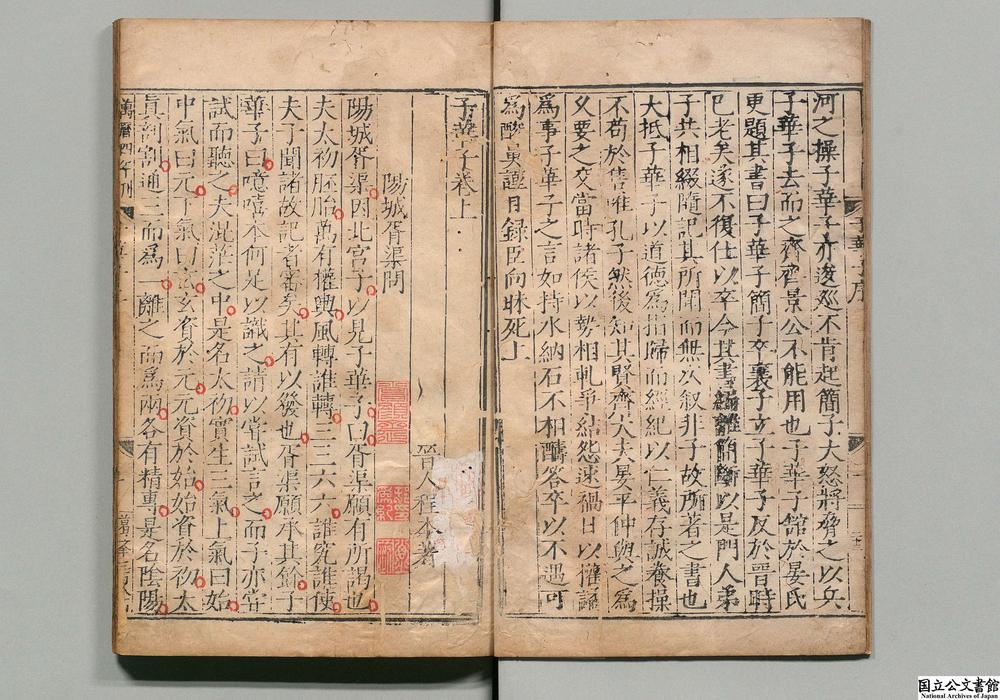 河之操子華子亦逡巡不肯起簡子大怒將脅之以兵
子華子去而之齊齊景公不能用也子華子館於晏氏
更題其書曰子華子簡子卒襄子立子華子反於晉時
已老矣遂不復仕以卒今其書編離簡斷以是門人弟
子共相綴隨記其所聞而無以叙非子故所著之書也
大抵子華子以道德為指歸而經紀以仁義存誠養操
不苟於售惟孔子然後知其賢齊大夫晏平仲與之為
久要之交當時諸侯以勢相軋爭結怨速禍日以權譎
為事子華子之言如持水納石不相醻答卒以不遇可
為酸鼻謹目録臣向昧死上
子華子序
子華子卷上
晉人程本著
陽城胥渠問
陽城胥渠因北宮子以見子華子曰胥渠願有所謁也
夫太初胚胎萬有權輿風轉誰轉三三六六誰究誰使
夫子聞諸故記者審矣其有以發也胥渠願承其餘子
華子曰噫嘻本何足以識之請以嘗試言之而子亦嘗
試而聽之夫混茫之中是名太初實生三氣上氣曰始
中氣曰元下氣曰玄玄資於元元資於始始資於初太
真剖割通三而為一離之而為兩各有精專是名陰陽
萬曆四年刊
国立公文書館
National Archives of Japan